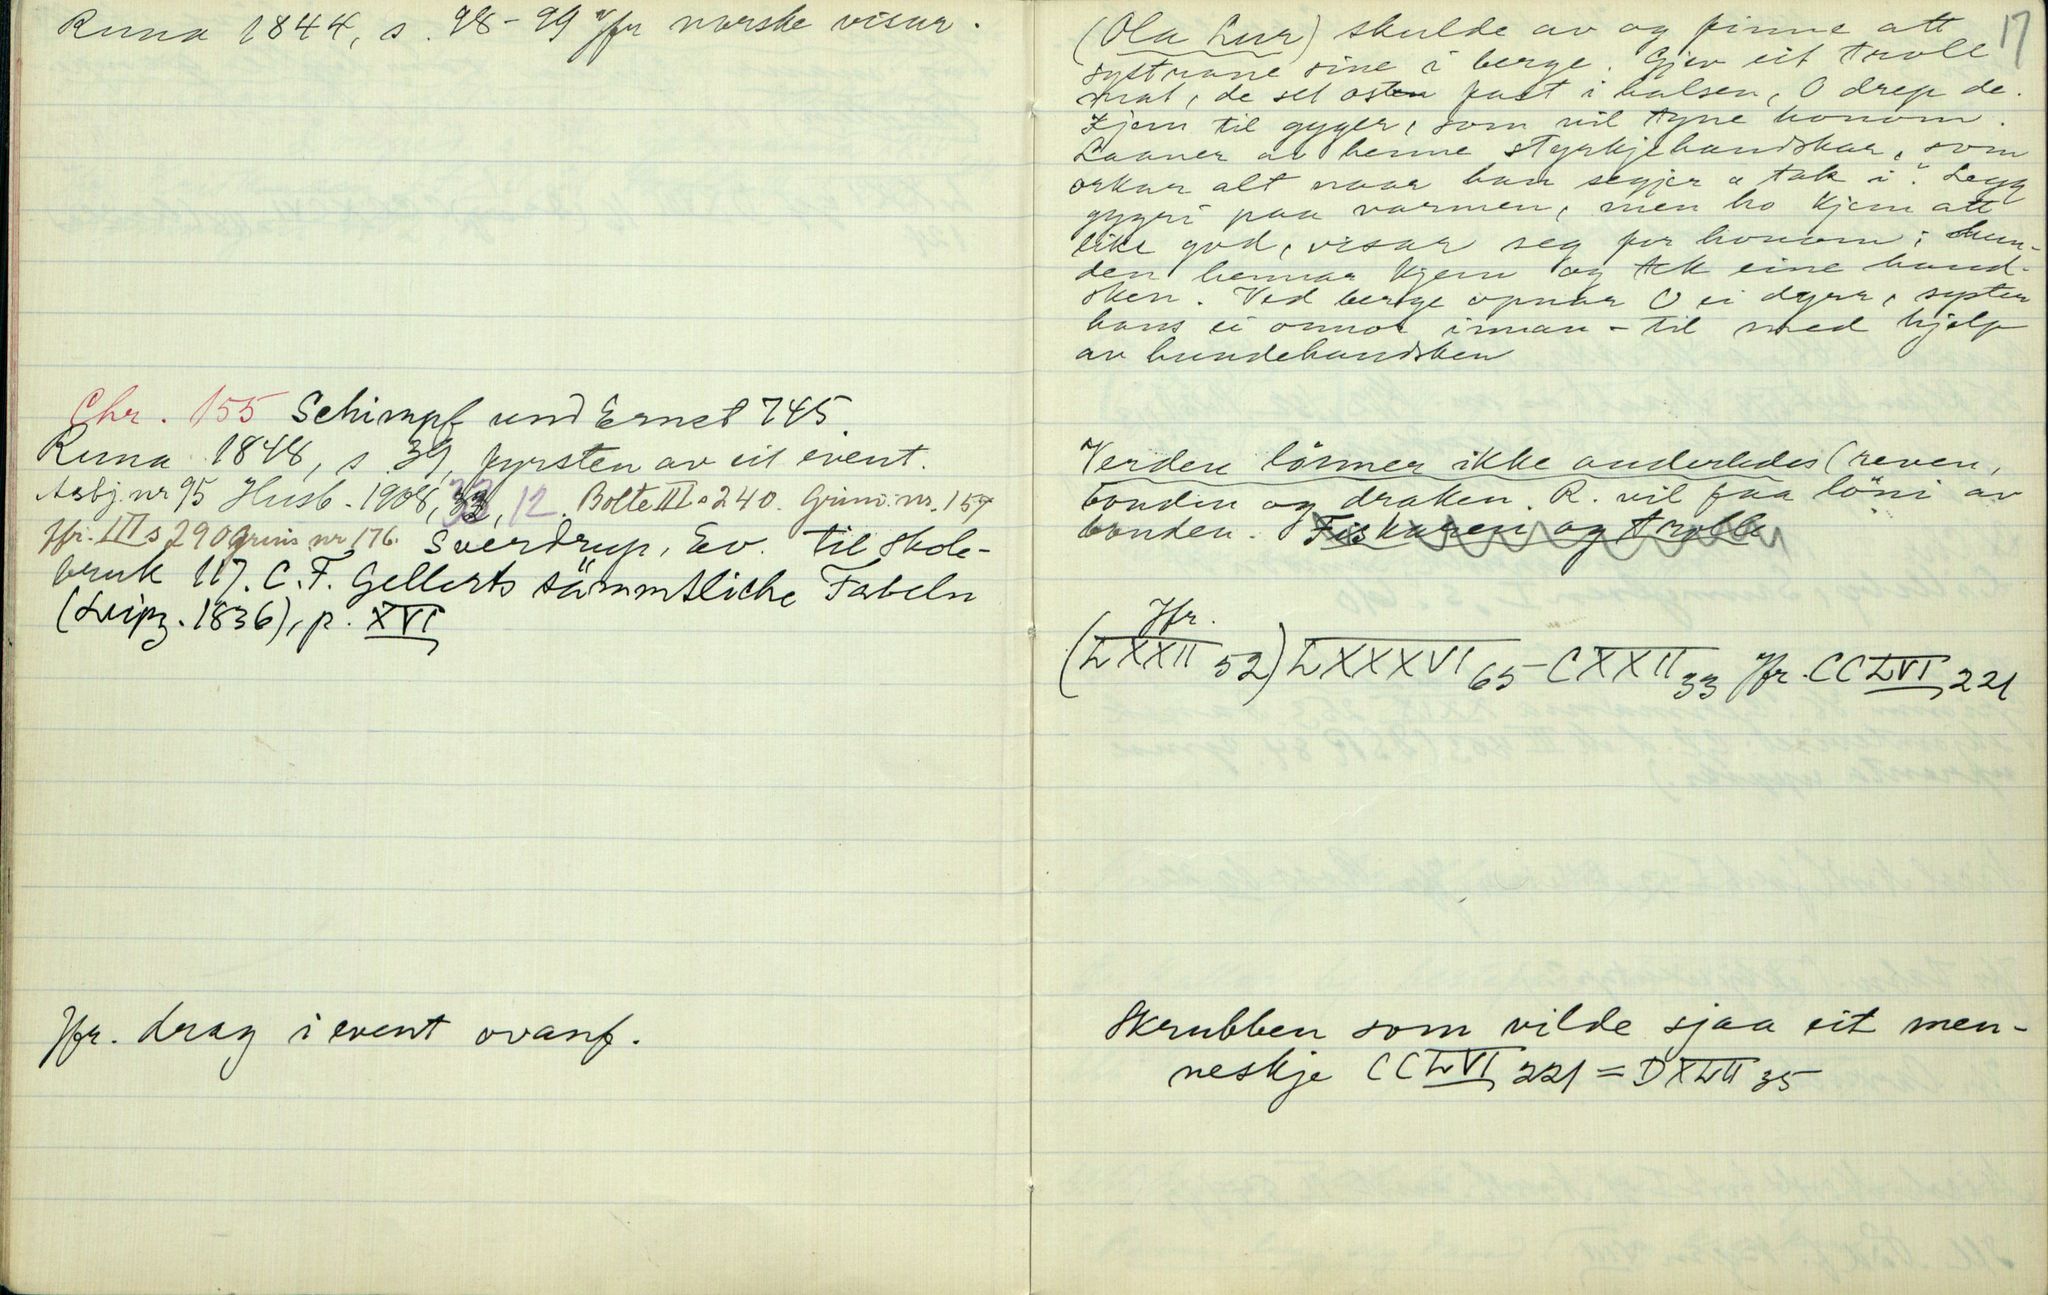 Runa 1844, s. 98-99 Jfr norske visur.
Chr. 155 Schimpf und Ernst 745.
Runa 1848, s 39, fyrsten av eit event.
Asbj. nr 95 Husb. 1908, 33, 12. Bolte III s 240. Grimm nr. 157
Jfr. III s 290 Grimm nr 176. Sverdrup, Ev. til skole-
bruk 117. C. F. Gellerts sämmtliche Fabeln
(Leipz. 1836), p. XVI
Jfr. drag i event ovanf.
17
(Ola Lur) skulde av og finne att
systrane sine i berge. Gjev eit troll
mat, de set osten fast i halsen, O drep de.
Kjem til gyger, som vil tyne honom.
Laaner av henne styrkjehandskar, som
orkar alt naar han segjer "tak i". Legg
gygri paa varmen, men ho kjem att
like god, visar seg for honom; hun-
den hennar kjem og tek eine hand-
sken. Ved berge opnar O ei dyrr, syster
hans ei onnor innan-til med hjelp
av hundehandsken
Verden lönner ikke anderledes (reven,
bonden og draken. R. vil faa löni av
bonden. Fiskaren og trolle
Jfr.
(LXXII 52) LXXXVI 65 - CXXII 33 Jfr. CCLVI, 221
Skrubben som vilde sjaa eit men-
neskje CCLVI, 221 = DXLII 35